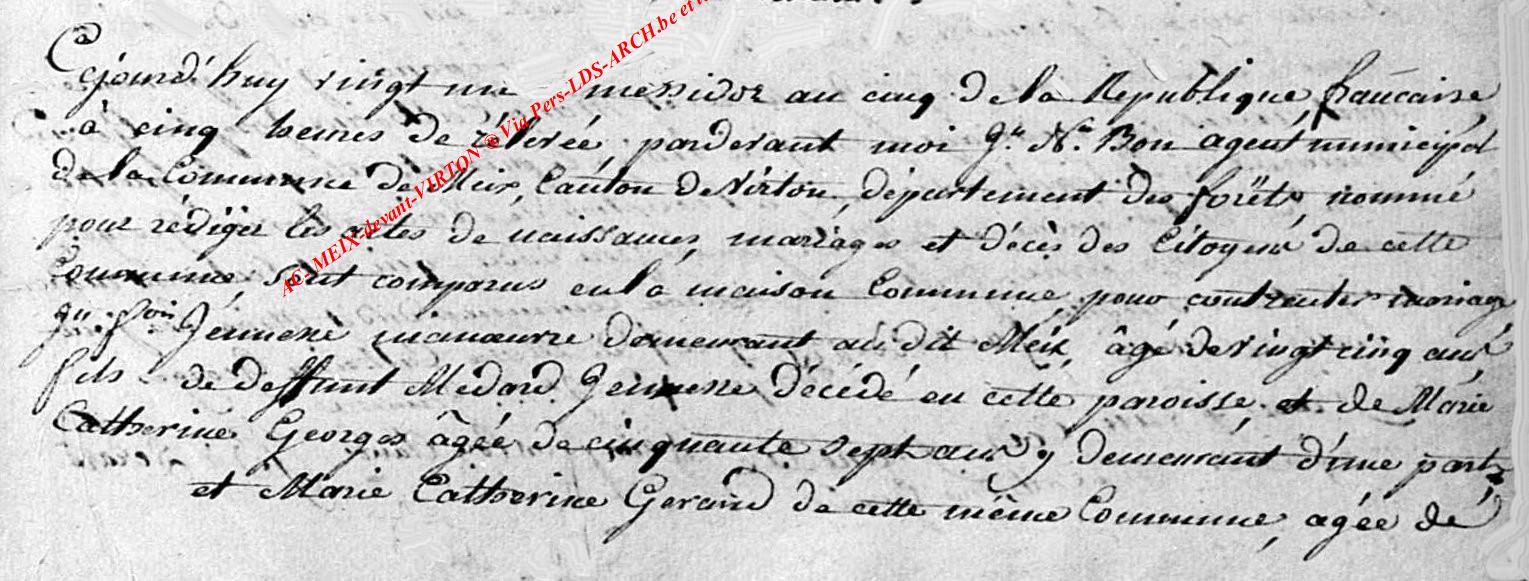 Cejourd'huy vingt un messidor an cinq de la République française
à cinq heures de rélevée, pardevant moi Jn. Ns. Bon agent municipal
de la Commune de Meix, Canton de Virton, département des forêts nommé
pour rédiger les actes de naissances, mariages et décès des Citoyens de cette
Commune, sont comparus en la maison Commune, pour contracter mariage
Jn. fçois Jeunesse manœuvre demeurant au dit Meix, âgé de vingt cinq ans
fils de deffunt Médard Jeunesse décédé en cette paroisse et de Marie
Catherine Georges âgée de cinquante sept ans y demeurant d'une part,
et Marie Catherine Gerard de cette même Commune, agée de
AC-MEIX-devant-VIRTON ® Via Pers-LDS-ARCH.be et